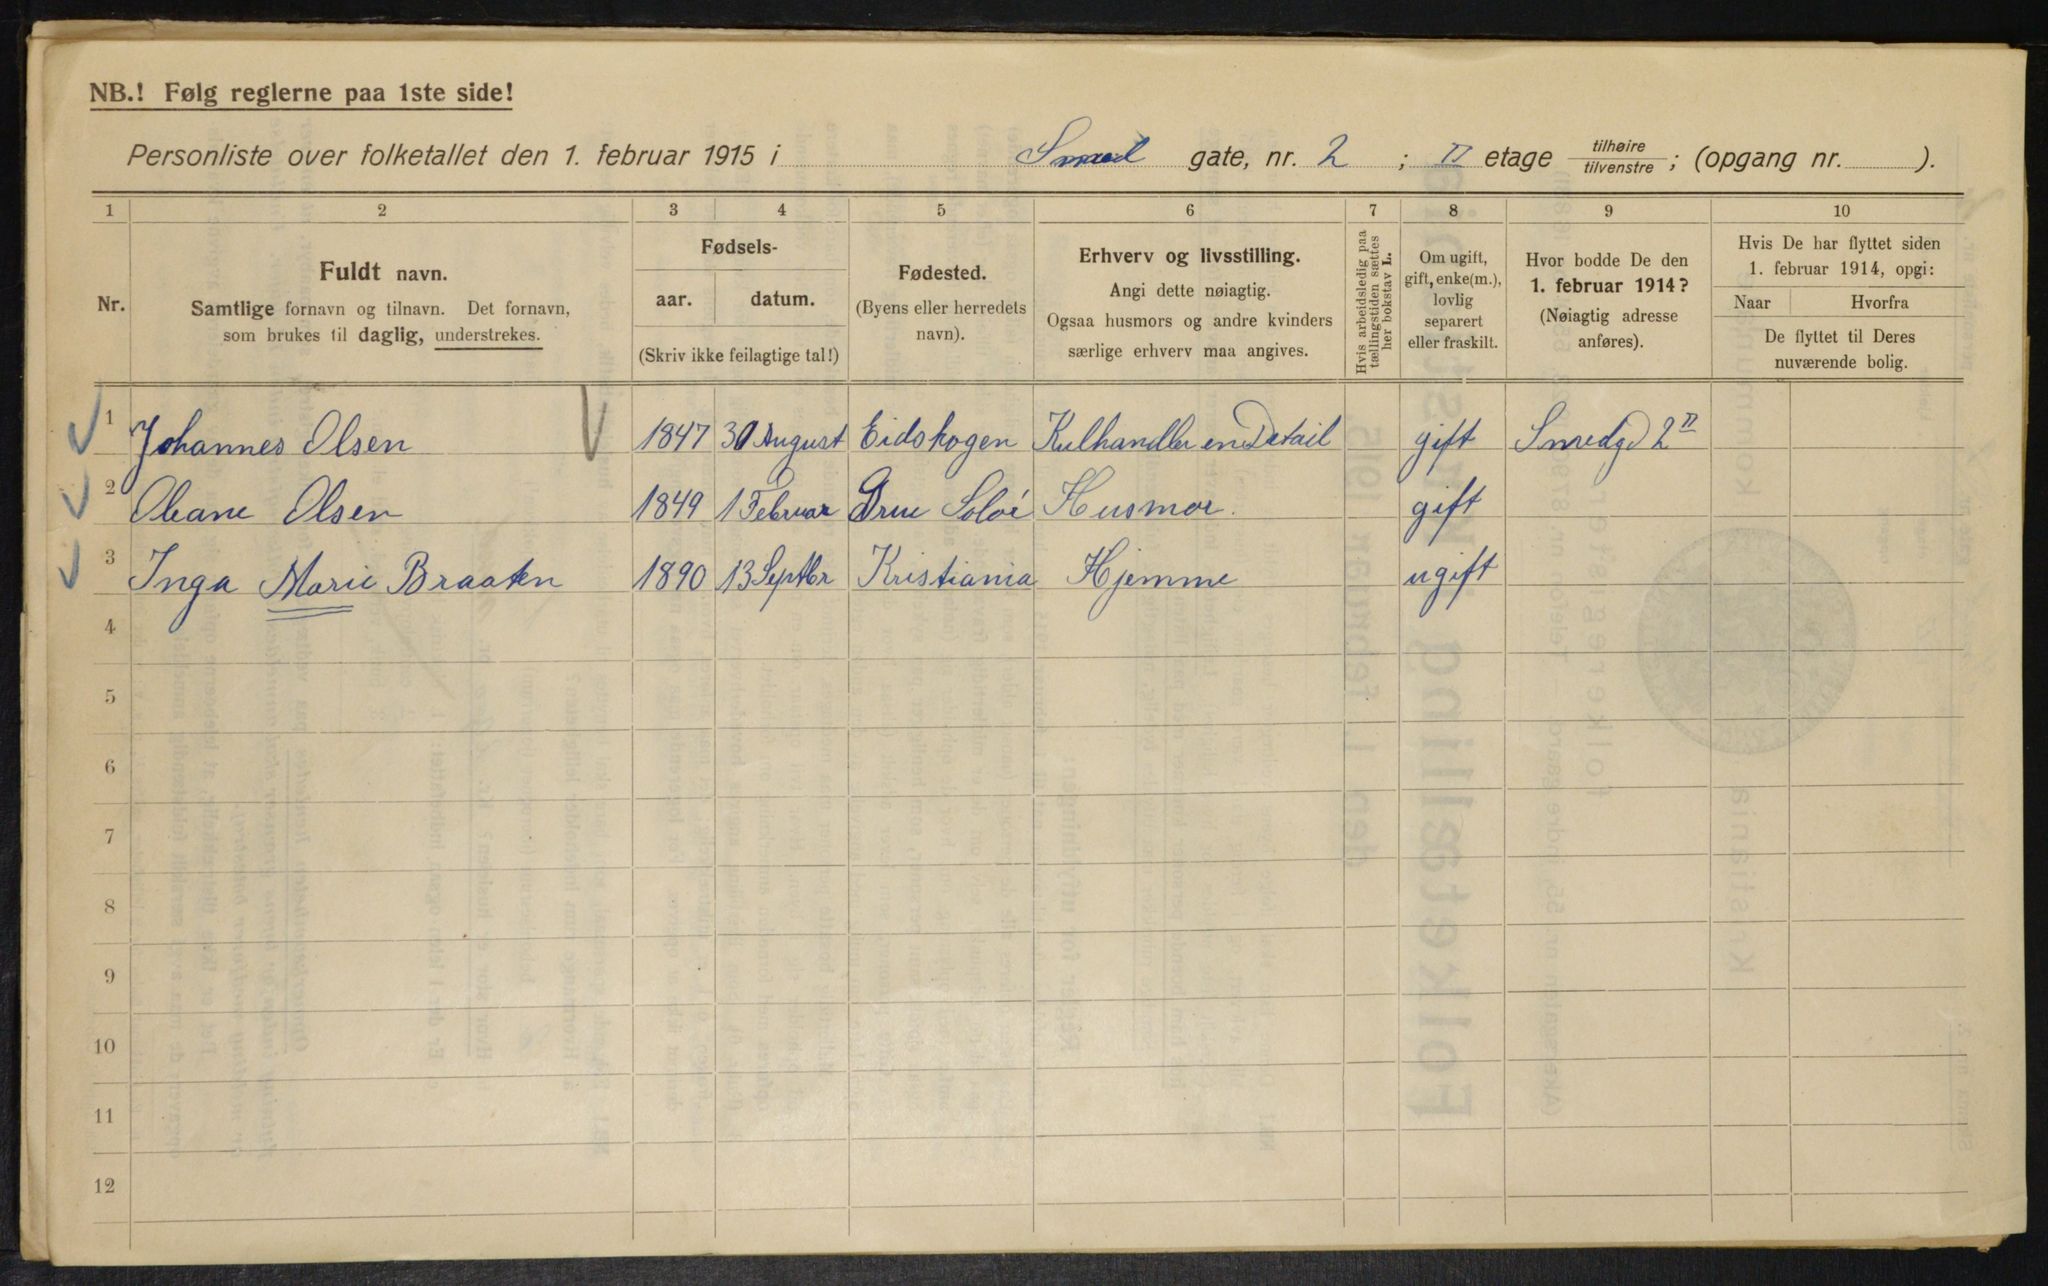 NB.! Følg reglerne paa 1ste side!
Personliste over folketallet den 1. februar 1915 i Smed gate, nr. 2 ; II etage tilhøire / tilvenstre ; (opgang nr. ).
1 2 3 4 5 6 7 8 9 10
Nr.
Fuldt navn.
Samtlige fornavn og tilnavn. Det fornavn,
som brukes til daglig, understrekes.
Fødsels-
aar. datum.
(Skriv ikke feilagtige tal!)
Fødested.
(Byens eller herredets
navn).
Erhverv og livsstilling.
Angi dette nøiagtig.
Ogsaa husmors og andre kvinders
særlige erhverv maa angives.
Hvis arbeidsledig paa
tællingstiden sættes
her bokstav L.
Om ugift,
gift, enke(m.),
lovlig
separert
eller fraskilt.
Hvor bodde De den
1. februar 1914?
(Nøiagtig adresse
anføres).
Hvis De har flyttet siden
1. februar 1914, opgi:
Naar Hvorfra
De flyttet til Deres
nuværende bolig.
1 Johannes Olsen 1847 30 August Eidskogen Kulhandler en Detail gift Smedgd 2 II
2 Oleane Olsen 1849 1 Februar Grue Solør Husmor. gift
3 Inga Marie Braaten 1890 13 Septbr Kristiania Hjemme ugift
4
5
6
7
8
9
10
11
12